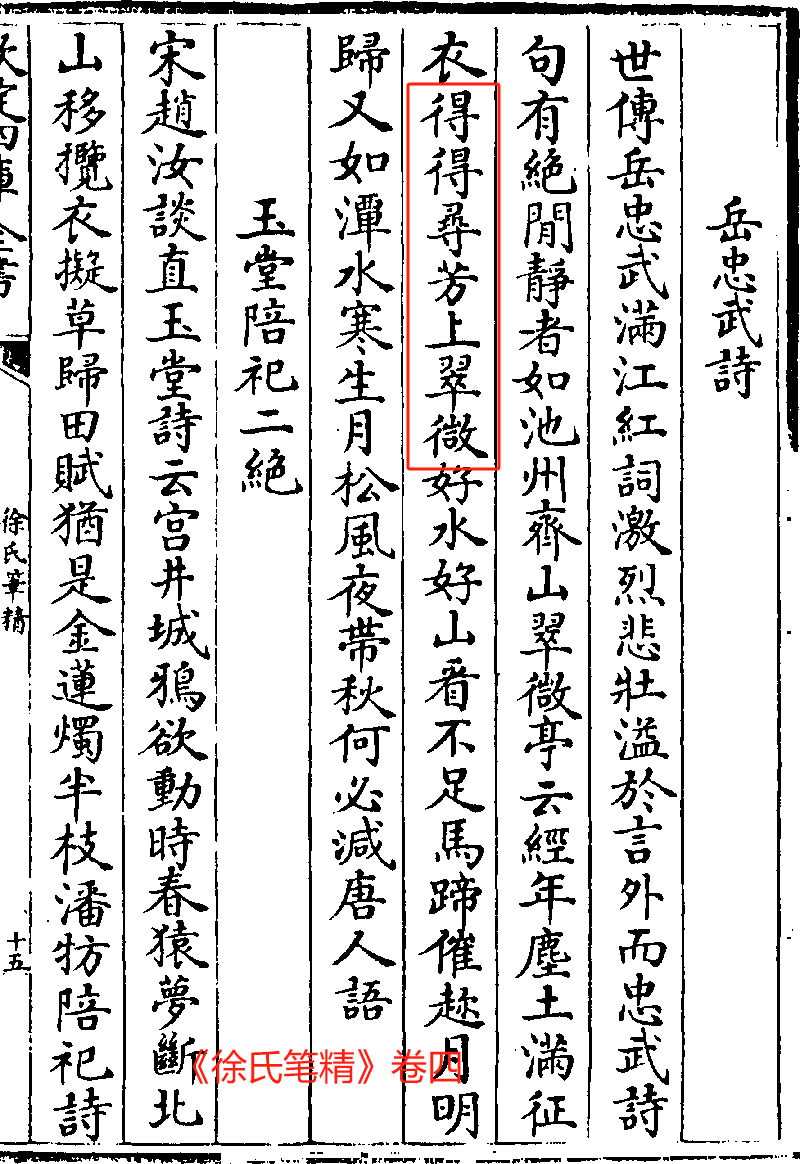 岳忠武詩
世傳岳忠武滿江紅詞激烈悲壯溢於言外而忠武詩
句有絕閒靜者如池州齊山翠微亭云經年塵土滿征
衣得得尋芳上翠微好水好山看不足馬蹄催趂月明
歸又如潭水寒生月松風夜帶秋何必減唐人語
玉堂陪祀二絕
宋趙汝談直玉堂詩云宮井城鴉欲動時春猿夢斷北
山移攬衣擬草歸田賦猶是金蓮燭半枝潘牥陪祀詩
欽定四庫全書
徐氏筆精
十五
《徐氏笔精》卷四